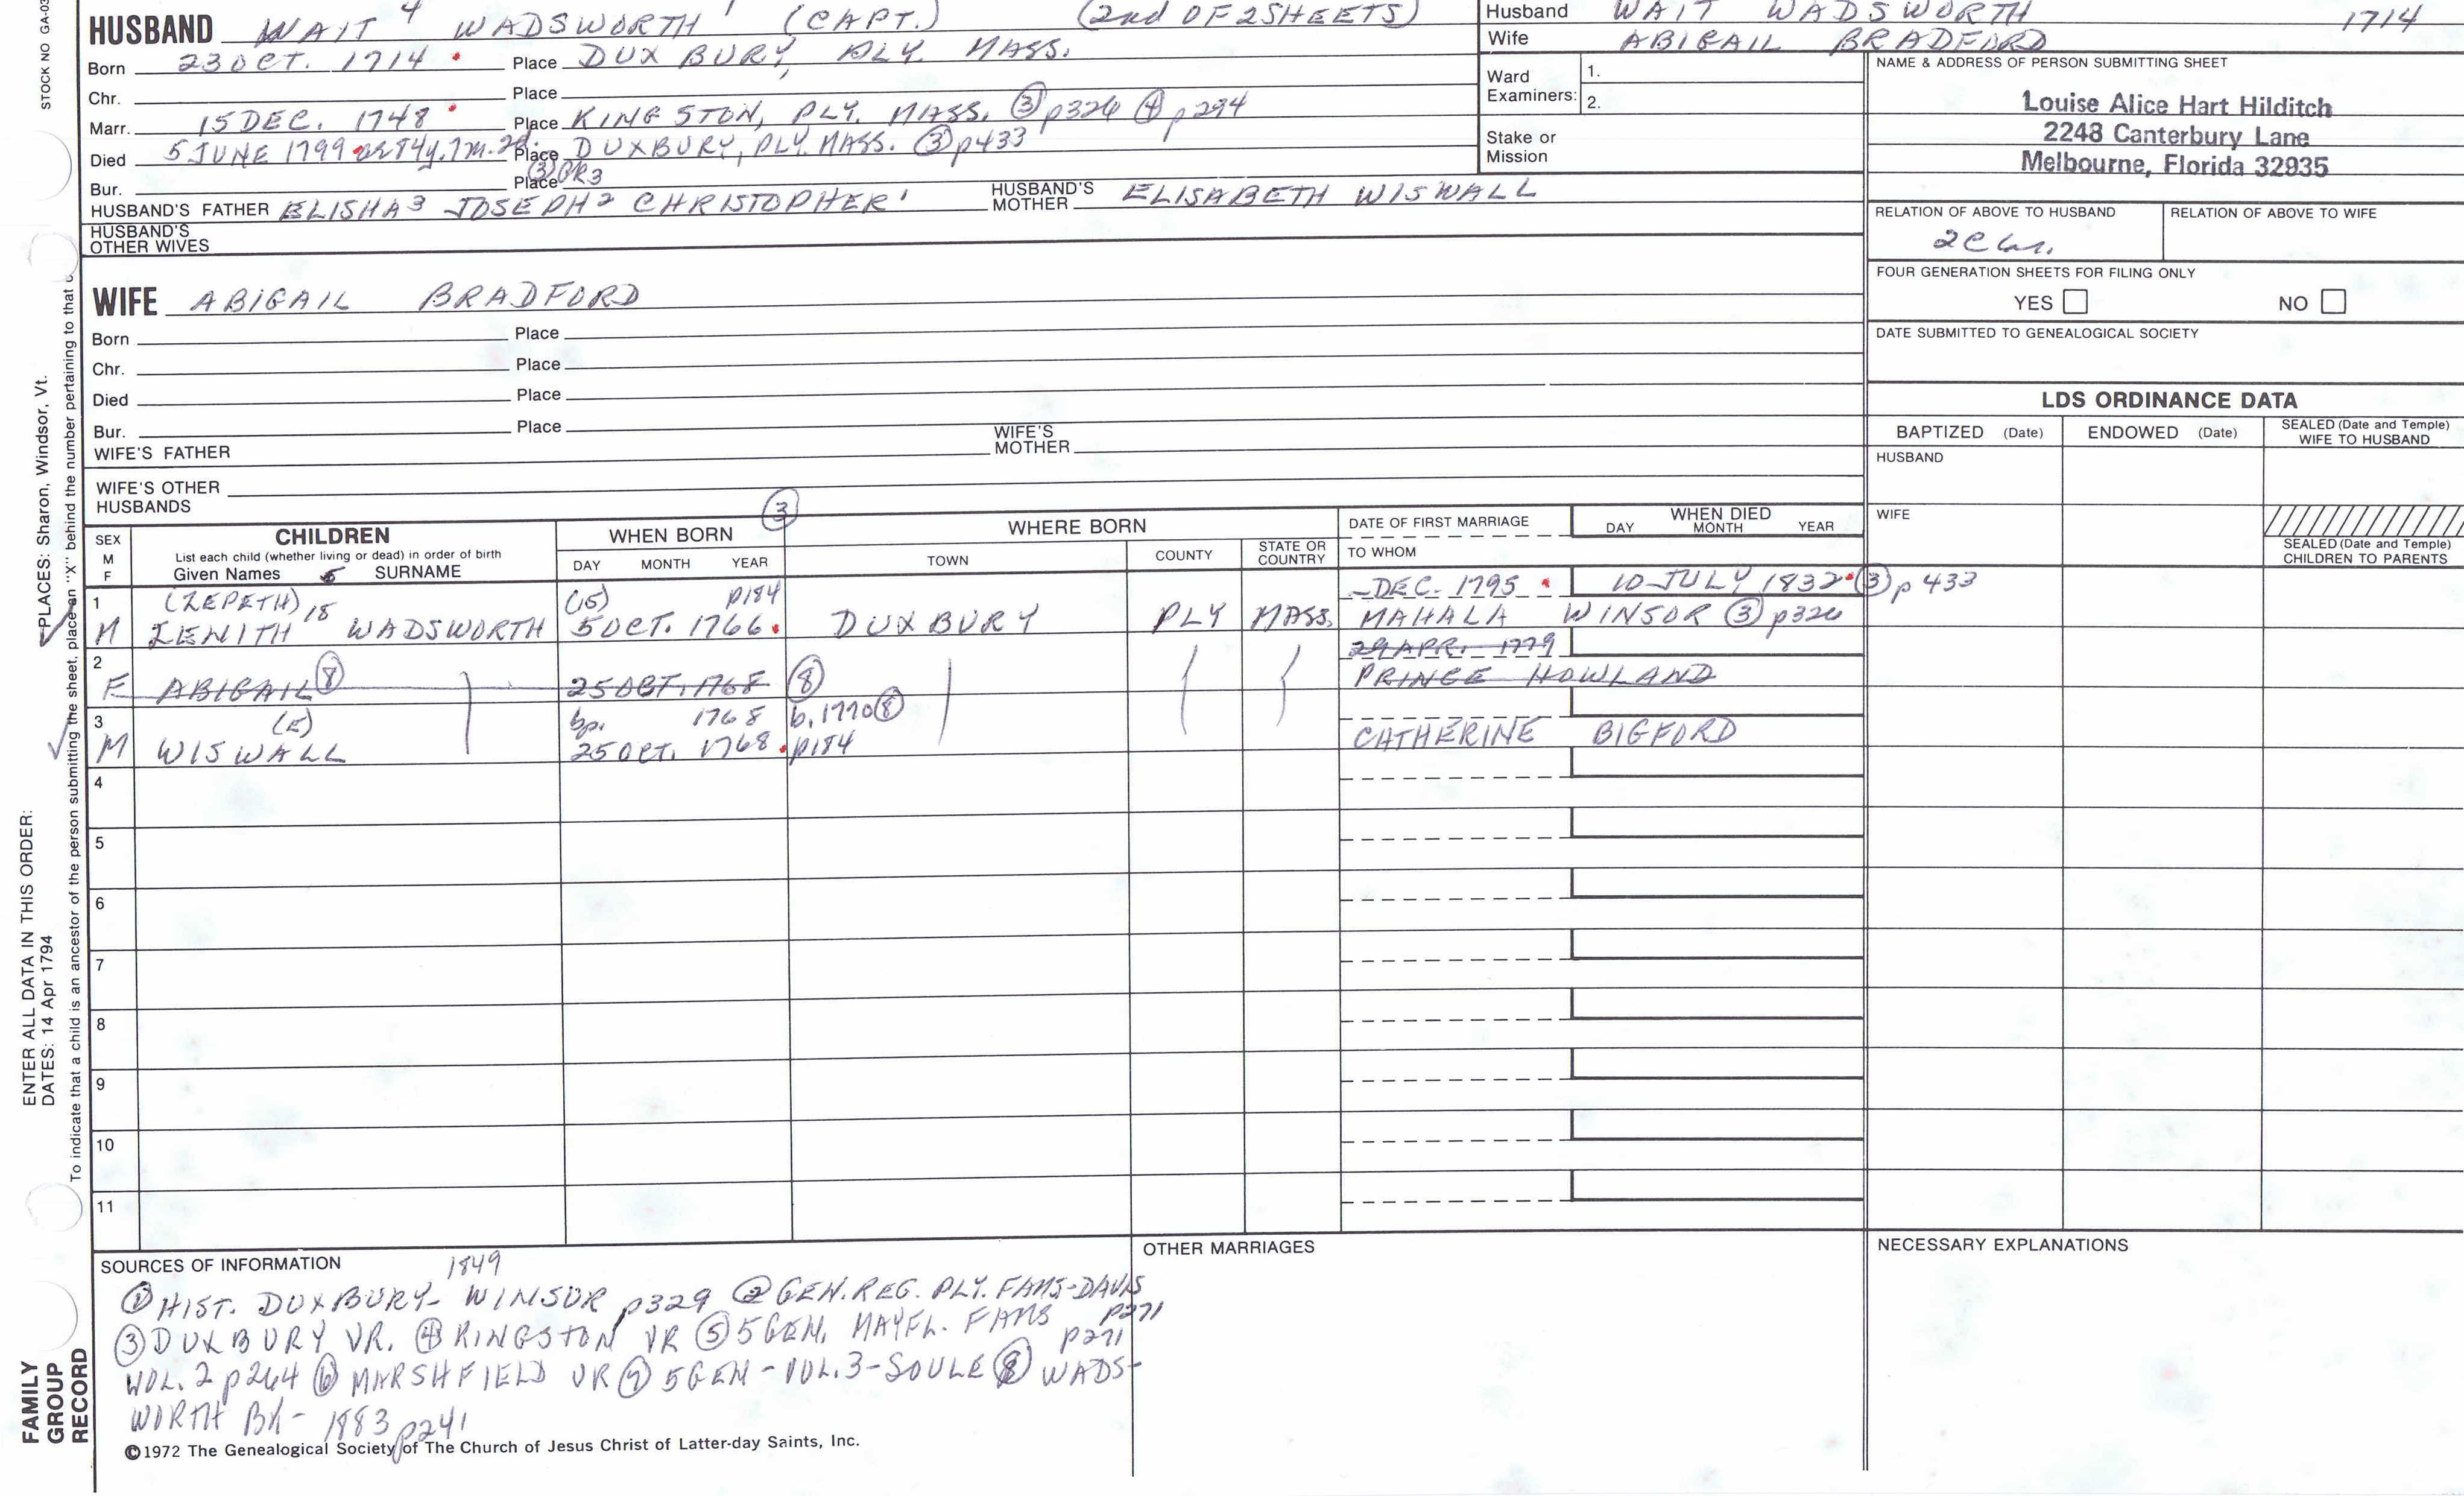 STOCK NO GA-03
HUSBAND WAIT 4 WADSWORTH (CAPT.) (2nd OF 2 SHEETS)
Born 23 OCT. 1714 Place DUXBURY, PLY. MASS.
Chr. Place
Marr. 15 DEC. 1748 Place KINGSTON, PLY. MASS. ③ p326 ④ p294
Died 5 JUNE 1799 ae 84y. 7m. 2d. Place DUXBURY, PLY. MASS. ③ p433
Bur. Place (3) GR3
HUSBAND'S FATHER ELISHA 3 JOSEPH 2 CHRISTOPHER 1 HUSBAND'S MOTHER ELISABETH WISWALL
HUSBAND'S OTHER WIVES
Husband WAIT WADSWORTH 1714
Wife ABIGAIL BRADFORD
Ward Examiners: 1.
2.
Stake or Mission
NAME & ADDRESS OF PERSON SUBMITTING SHEET
Louise Alice Hart Hilditch
2248 Canterbury Lane
Melbourne, Florida 32935
RELATION OF ABOVE TO HUSBAND RELATION OF ABOVE TO WIFE
2C
FOUR GENERATION SHEETS FOR FILING ONLY
YES NO
DATE SUBMITTED TO GENEALOGICAL SOCIETY
WIFE ABIGAIL BRADFORD
Born Place
Chr. Place
Died Place
Bur. Place
WIFE'S FATHER WIFE'S MOTHER
WIFE'S OTHER HUSBANDS
LDS ORDINANCE DATA
BAPTIZED (Date) ENDOWED (Date) SEALED (Date and Temple) WIFE TO HUSBAND
HUSBAND
WIFE
SEALED (Date and Temple) CHILDREN TO PARENTS
SEX M F
CHILDREN
List each child (whether living or dead) in order of birth
Given Names SURNAME
WHEN BORN ③
DAY MONTH YEAR
WHERE BORN
TOWN COUNTY STATE OR COUNTRY
DATE OF FIRST MARRIAGE
TO WHOM
WHEN DIED
DAY MONTH YEAR
1 (ZEPETH) (15) p184 -DEC. 1795 10 JULY 1832 ③ p 433
M ZENITH 18 WADSWORTH 5 OCT. 1766 DUXBURY PLY MASS. MAHALA WINSOR ③ p326
2 29 APR. 1779
F ABIGAIL ⑧ 25 OCT. 1768 ⑧ PRINCE HOWLAND
3 (E) bp. 1768 b. 1770 ⑧
M WISWALL 25 OCT. 1768 p184 CATHERINE BIGFORD
4
5
6
7
8
9
10
11
SOURCES OF INFORMATION 1849
① HIST. DUXBURY - WINSOR p329 ② GEN. REG. PLY. FAMS - DAVIS p271
③ DUXBURY VR. ④ KINGSTON VR ⑤ 5 GEN. MAYFL. FAMS p271
VOL. 2 p264 ⑥ MARSHFIELD VR ⑦ 5 GEN - VOL. 3 - SOULE ⑧ WADS-
WORTH BK - 1883 p241
OTHER MARRIAGES
NECESSARY EXPLANATIONS
©1972 The Genealogical Society of The Church of Jesus Christ of Latter-day Saints, Inc.
PLACES: Sharon, Windsor, Vt.
ENTER ALL DATA IN THIS ORDER:
DATES: 14 Apr 1794
To indicate that a child is an ancestor of the person submitting the sheet, place an "X" behind the number pertaining to that
FAMILY
GROUP
RECORD